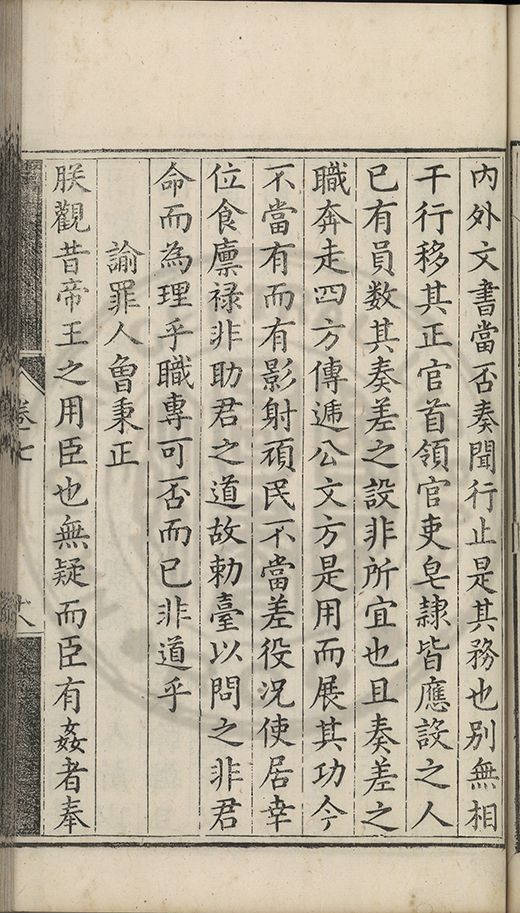 內外文書當否奏聞行止是其務也別無相
干行移其正官首領官吏皂隷皆應設之人
已有員數其奏差之設非所宜也且奏差之
職奔走四方傳遞公文方是用而展其功今
不當有而有影射頑民不當差役况使居幸
位食廩禄非助君之道故勅臺以問之非君
命而為理乎職專可否而已非道乎
諭罪人魯秉正
朕觀昔帝王之用臣也無疑而臣有姦者奉
卷七